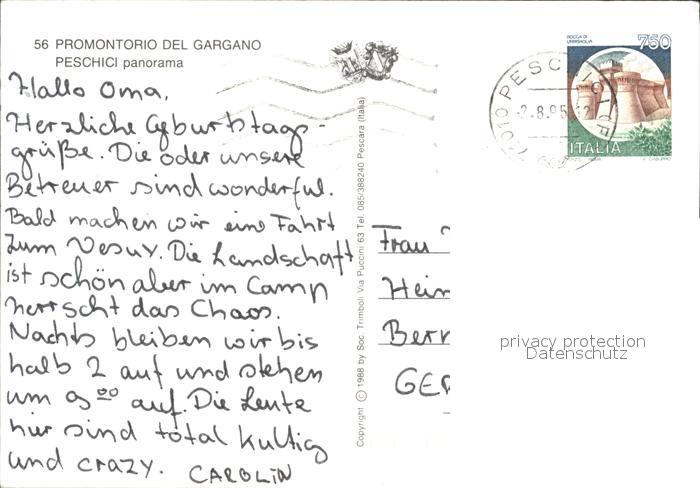 56 PROMONTORIO DEL GARGANO
PESCHICI panorama
Hallo Oma,
Herzliche Geburtstags-
grüße. Die oder unsere
Betreuer sind wonderful.
Bald machen wir eine Fahrt
zum Vesuv. Die Landschaft
ist schön aber im Camp
herrscht das Chaos.
Nachts bleiben wir bis
halb 2 auf und stehen
um 9 00 auf. Die Leute
hier sind total kultig
und crazy. CAROLIN
Copyright © 1988 by Soc. Trimboli Via Puccini 63 Tel. 085/388240 Pescara (Italia)
ROCCA DI
URBISAGLIA
750
ITALIA
71010 PESCHICI
2.8.95
Frau
Hein
Bern
GER
privacy protection
Datenschutz